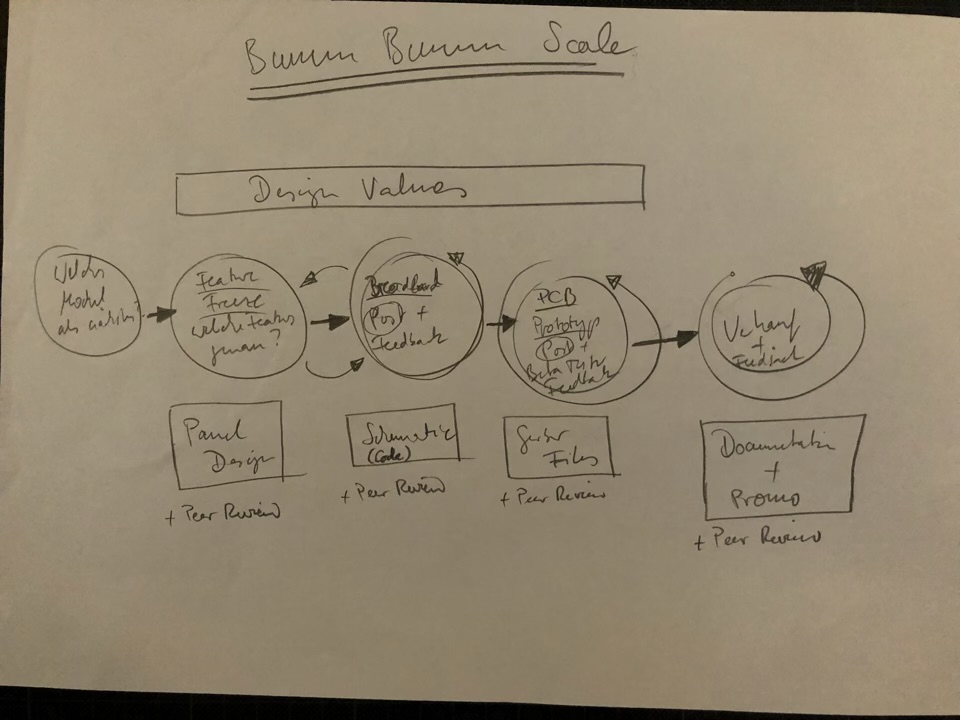 Bumm Bumm Scale
Design Values
Welches
Modul
als nächstes?
Feature
Freeze
welche Features
genau?
Breadboard
Post +
Feedback
PCB
Prototyp
Post +
Beta Tester
Feedback
Verkauf
+
Feedback
Panel
Design
+ Peer Review
Schematic
(Code)
+ Peer Review
Gerber
Files
+ Peer Review
Documentation
+
Promo
+ Peer Review